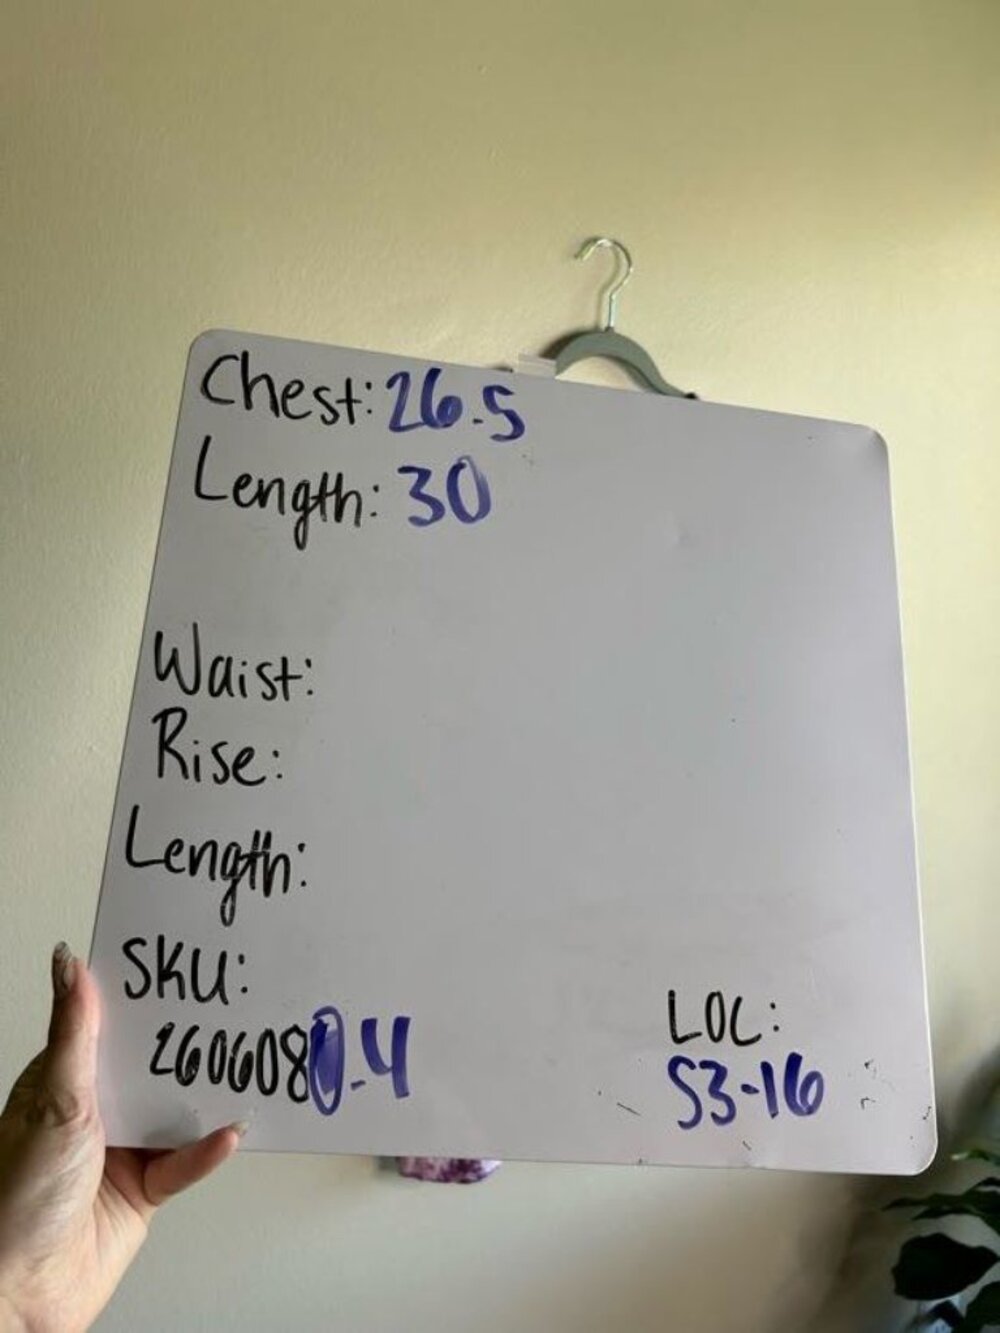 Chest: 26.5
Length: 30
Waist:
Rise:
Length:
SKU:
2606080-4
LOC:
S3-16